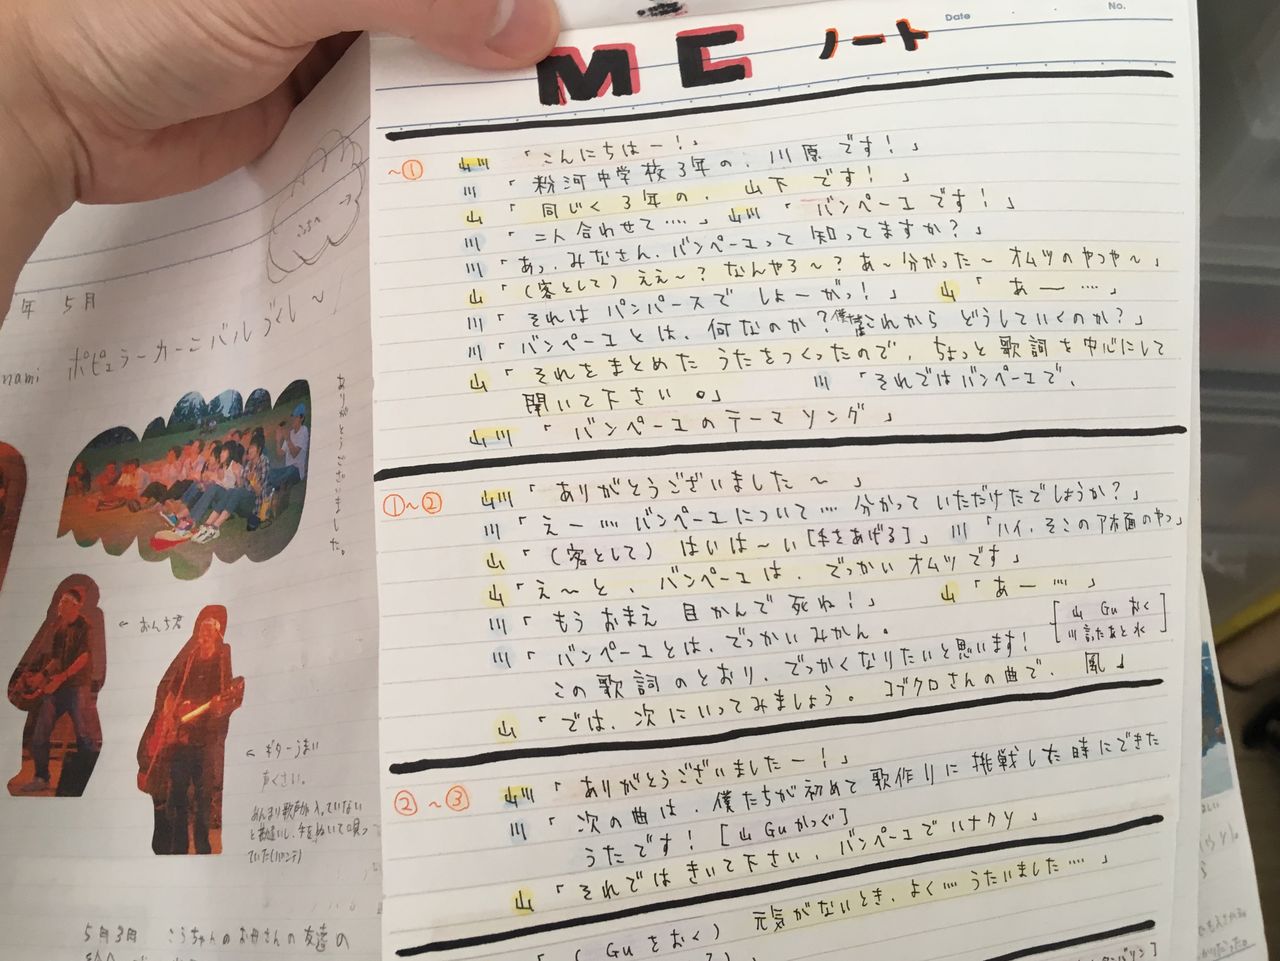 Date
No.
MC ノート
～① 山川 「こんにちはー！」
川 「粉河中学校3年の、川原です！」
山 「同じく3年の、山下です！」
川 「二人合わせて…」 山川 「バンペーユです！」
川 「あっ、みなさん、バンペーユって知ってますか？」
山 「(客として) ええ～？なんやろ～？あ～分かった～オムツのやつや～」
川 「それはパンパースでしょーがっ！」 山 「あー…」
川 「バンペーユとは、何なのか？僕達はこれからどうしていくのか？」
山 「それをまとめたうたをつくったので、ちょっと歌詞を中心にして
聞いて下さい。」 川 「それではバンペーユで、
山川 「バンペーユのテーマソング」
①～② 山川 「ありがとうございました～」
川 「えー…バンペーユについて…分かっていただけたでしょうか？」
山 「(客として) はいは～い[手をあげる]」 川 「ハイ、そこのアホ面のやつ」
山 「え～と、バンペーユは、でっかいオムツです」
川 「もうおまえ目かんで死ね！」 山 「あー…」
川 「バンペーユとは、でっかいみかん。
この歌詞のとおり、でっかくなりたいと思います！
[山 Gu おく
川 言ったあと水]
山 「では、次にいってみましょう。コブクロさんの曲で、風」
②～③ 山川 「ありがとうございましたー！」
川 「次の曲は、僕たちが初めて歌作りに挑戦した時にできた
うたです！[山 Gu かつぐ]
山 「それではきいて下さい、バンペーユでハナクソ」
元気がないとき、よく…うたいました…」
(Gu をおく)
年 5月
nami ポピュラーカーニバルづくし～
こちらへ→
ありがとうございました。
← おんち君
← ギターうまい
声くさい。
あんまり歌声が入っていない
と勘違いし、手をぬいて唄っ
ていた
5月3日 こうちゃんのお母さんの友達の